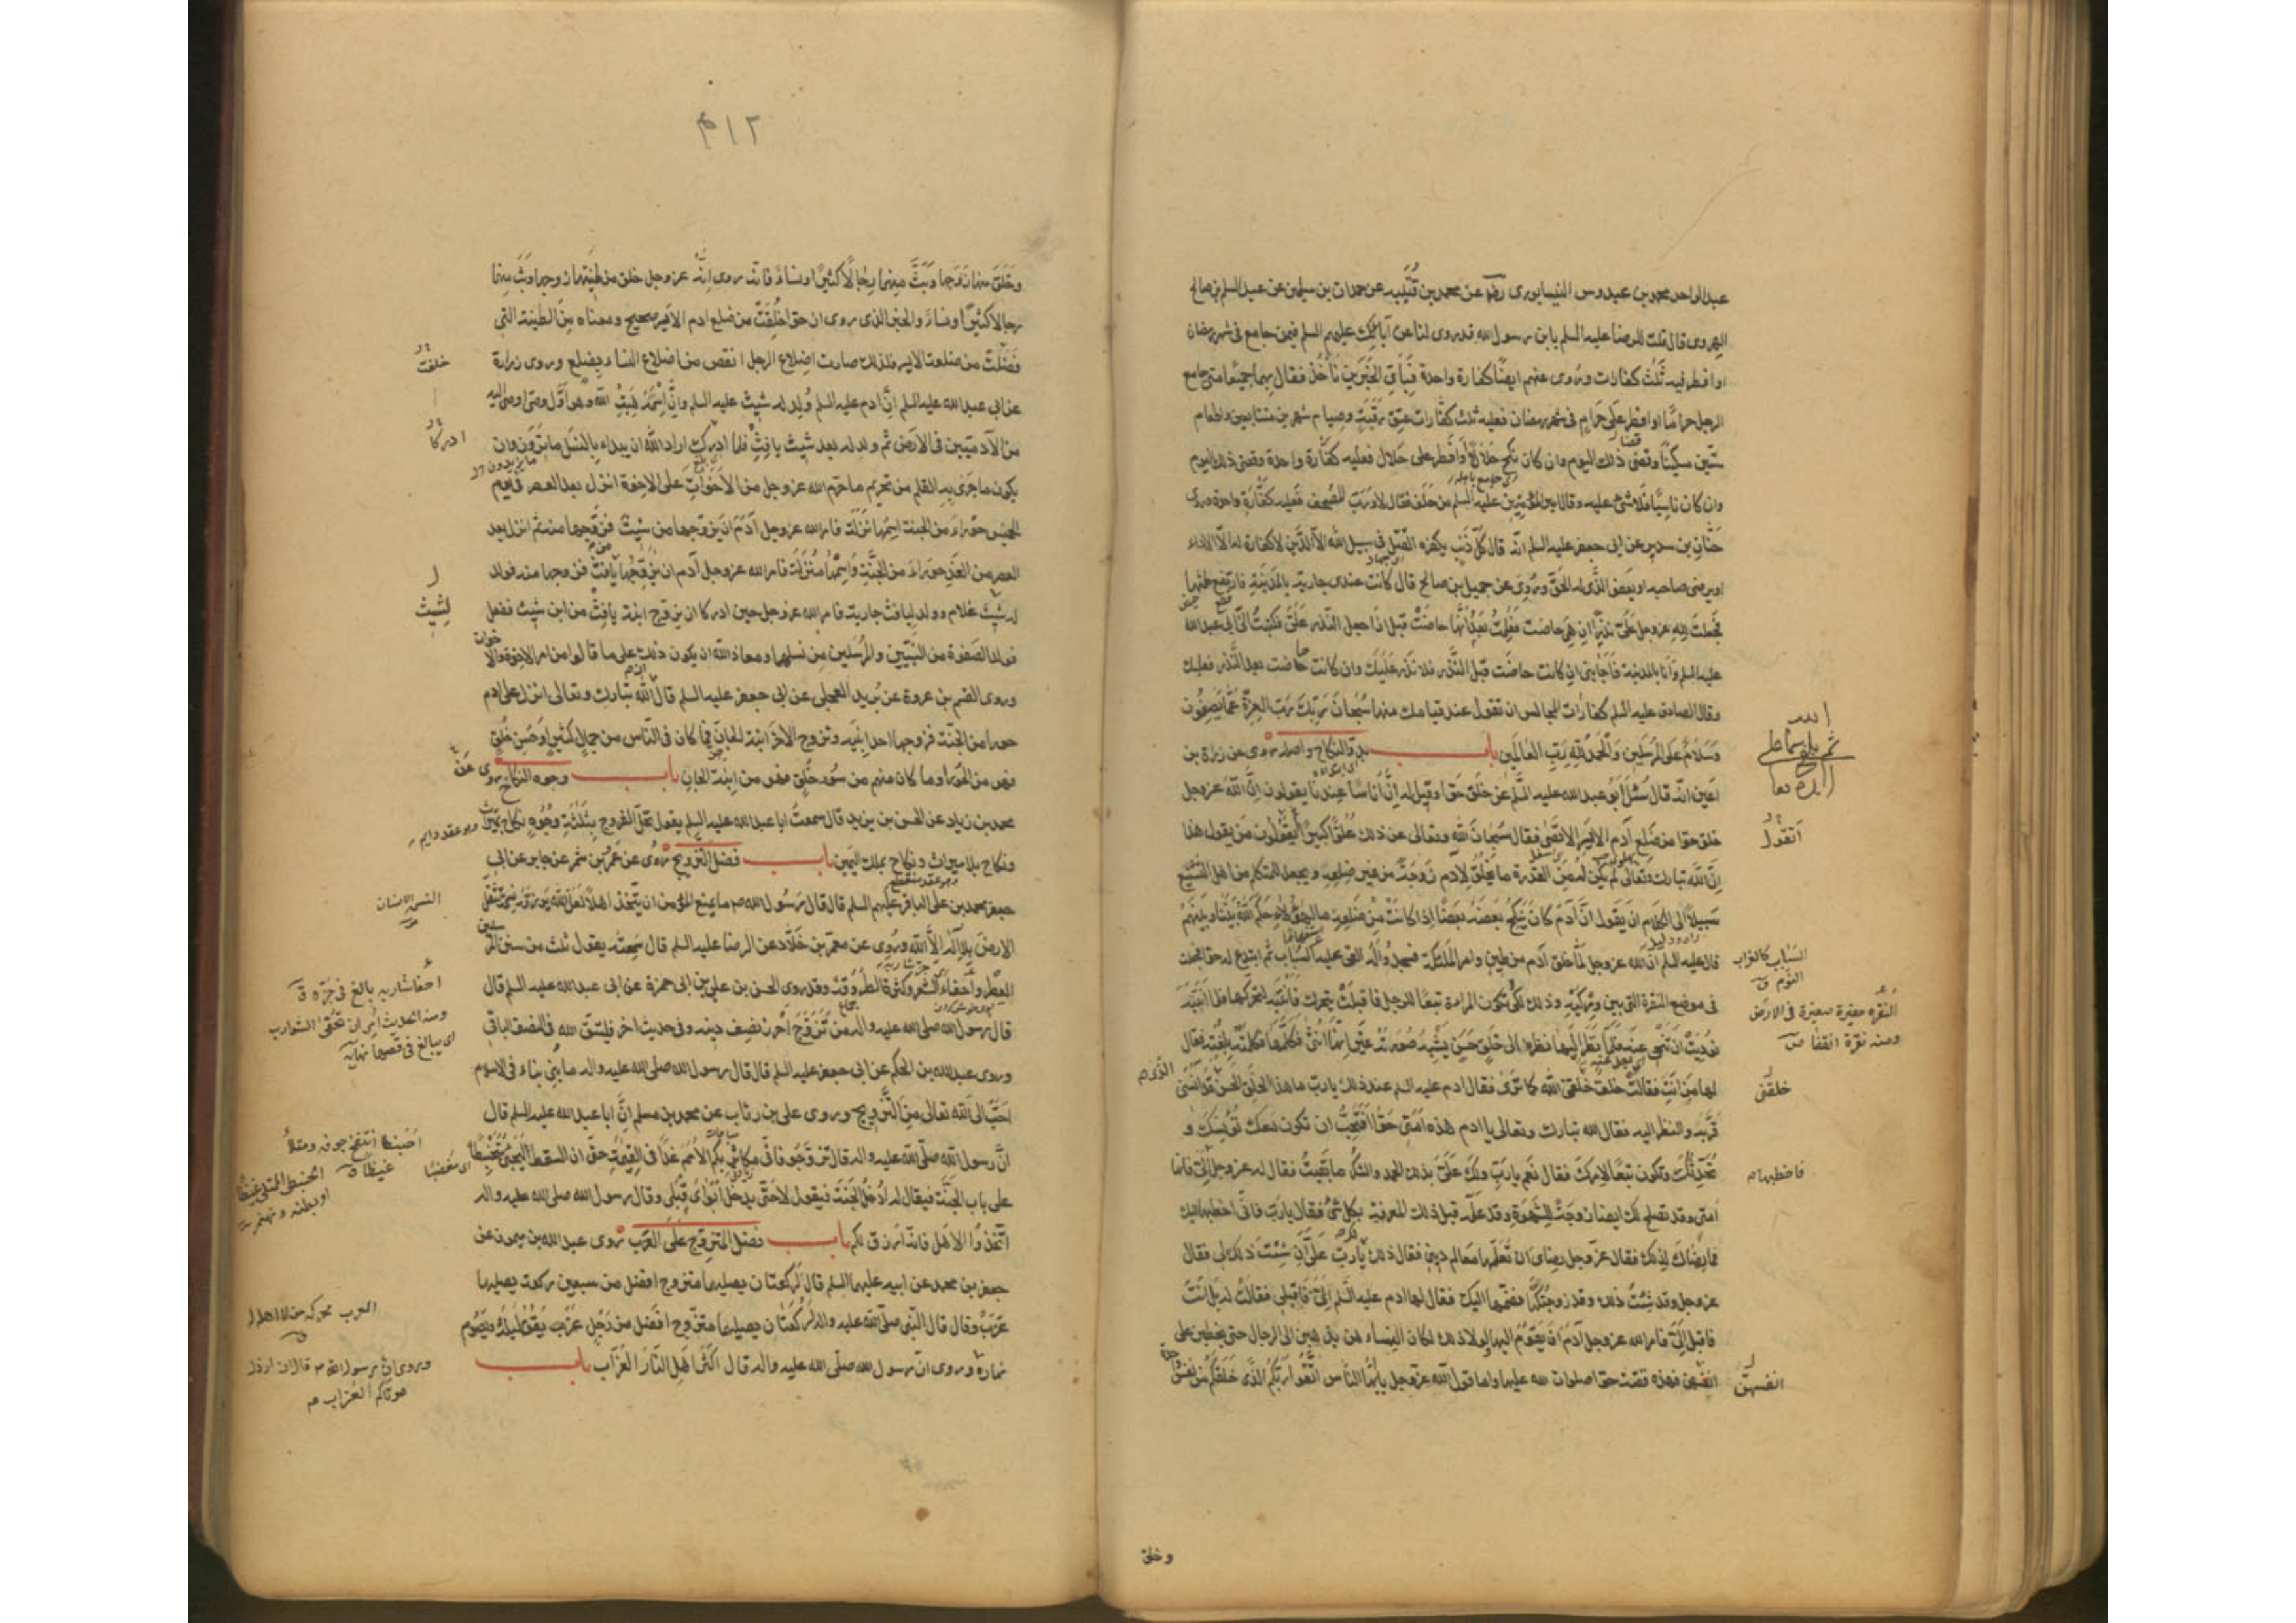 عبد الواحد محمد بن عبدوس النيسابوري رضه عن محمد بن قتيبه عن حمدان بن سليمن عن عبد السلم بن صالح
الهروي قال قلت للرضا عليه السلم يابن رسول الله قد روى لنا عن آبائك عليهم السلم فيمن جامع في شهر رمضان
او افطر فيه ثلث كفارات وروى عنهم ايضا كفارة واحدة فباي الخبرين ناخذ فقال بهما جميعا متى جامع
الرجل حراما او افطر على حرام في شهر رمضان فعليه ثلث كفارات عتق رقبة وصيام شهرين متتابعين واطعام
ستين مسكينا وقضى ذلك اليوم وان كان نكح حلالا او افطر على حلال فعليه كفارة واحدة وقضى ذلك اليوم
وان كان ناسيا فلا شئ عليه وقال امير المؤمنين عليه السلم من حلف فقال لا ورب المصحف فعليه كفارة واحدة وروى
حنان بن سدير عن ابي جعفر عليه السلم انه قال كل ذنب يكفره القتل في سبيل الله الا الدين لا كفارة له الا الاداء
او يرضى صاحبه او يعفو الذي له الحق وروى عن جميل بن صالح قال كانت عندي جارية بالمدينة فارتفع طمثها
فجعلت لله عز وجل علي نذرا ان هي حاضت فعلمت بعد انها حاضت قبل ان اجعل النذر علي فكتبت الى ابي عبد الله
عليه السلم وانا بالمدينة فاجابني ان كانت حاضت قبل النذر فلا نذر عليك وان كانت حاضت بعد النذر فعليك
وقال الصادق عليه السلم كفارات المجالس ان تقول عند قيامك منها سبحان ربك رب العزة عما يصفون
وسلام على المرسلين والحمد لله رب العالمين باب بدو النكاح واصله روى عن زرارة بن
اعين انه قال سئل ابو عبد الله عليه السلم عن خلق حوا وقيل له ان اناسا عندنا يقولون ان الله عز وجل
خلق حوا من ضلع آدم الايسر الاقصى فقال سبحان الله وتعالى عن ذلك علوا كبيرا ايقولون من يقول هذا
ان الله تبارك وتعالى لم يكن له من القدرة ما يخلق لآدم زوجة من غير ضلعه ويجعل للمتكلم من اهل التشنيع
سبيلا الى الكلام ان يقول ان آدم كان ينكح بعضه بعضا اذا كانت من ضلعه ما لهؤلاء حكم الله بيننا وبينهم
قال عليه السلم ان الله عز وجل لما خلق آدم من طين وامر الملئكة فسجدوا له القى عليه السبات ثم ابتدع له حوا فجعلها
في موضع النقرة التي بين وركيه وذلك لكي تكون المراة تبعا للرجل فاقبلت تتحرك فانتبه لتحركها فلما انتبه
نوديت ان تنحي عنه فلما نظر اليها نظر الى خلق حسن يشبه صورته غير انها انثى فكلمها فكلمته بلغته فقال
لها من انت فقالت خلق خلقني الله كما ترى فقال ادم عليه السلم عند ذلك يا رب ما هذا الخلق الحسن قد انسني
قربه والنظر اليه فقال الله تبارك وتعالى يا ادم هذه امتي حوا افتحب ان تكون معك تؤنسك و
تحدثك وتكون تبعا لامرك فقال نعم يا رب ولك علي بذلك الحمد والشكر ما بقيت فقال له عز وجل فانها
امتي وقد تصلح لك ايضا زوجة للشهوة وقد علمه قبل ذلك المعرفة بكل شئ فقال يا رب فاني اخطبها اليك
فما رضاك لذلك فقال عز وجل رضاي ان تعلمها معالم ديني فقال ذلك يا رب علي ان شئت ذلك لي فقال
عز وجل وقد شئت ذلك وقد زوجتكها فضمها اليك فقال لها ادم عليه السلم الي فاقبلي فقالت له بل انت
فاقبل الي فامر الله عز وجل آدم ان يقوم اليها ولولا ذلك لكان النساء هن يذهبن الى الرجال حتى يخطبن على
انفسهن فهذه قصة حوا صلوات الله عليها واما قول الله عز وجل يا ايها الناس اتقوا ربكم الذي خلقكم من نفس واحدة
انقول
السبات كالغراب
النوم ق
النقره حفيرة صغيرة في الارض
ومنه نقرة القفا ص
خلقني
فاخطبها م
انفسهن
وخلق
٢١٣
وخلق منها زوجها وبث منهما رجالا كثيرا ونساء فانه روى انه عز وجل خلق من طينتها زوجها وبث منهما
رجالا كثيرا ونساء والخبر الذي روى ان حوا خلقت من ضلع ادم الايسر صحيح ومعناه من الطينة التي
فضلت من ضلعه الايسر فلذلك صارت اضلاع الرجل انقص من اضلاع النساء بضلع وروى زرارة
عن ابي عبد الله عليه السلم ان آدم عليه السلم ولد له شيث عليه السلم وان اسمه هبة الله وهو اول وصي اوصي اليه
من الآدميين في الارض ثم ولد له بعد شيث يافث فلما ادرك اراد الله ان يبدء بالنسل ما ترون وان
يكون ما جرى به القلم من تحريم ما حرم الله عز وجل من الاخوات على الاخوة انزل بعد العصر في يوم
الخميس حوراء من الجنة اسمها نزلة فامر الله عز وجل آدم ان يزوجها من شيث فزوجها منه ثم انزل بعد
العصر من الغد حوراء من الجنة واسمها منزلة فامر الله عز وجل آدم ان يزوجها يافث فزوجها منه فولد
لشيث غلام وولد ليافث جارية فامر الله عز وجل حين ادركا ان يزوج ابنة يافث من ابن شيث ففعل
فولد الصفوة من النبيين والمرسلين من نسلهما ومعاذ الله ان يكون ذلك على ما قالوا من امر الاخوة والاخوات
وروى القسم بن عروة عن بريد العجلي عن ابي جعفر عليه السلم قال الله تبارك وتعالى انزل على ادم
حورا من الجنة فزوجها احد ابنيه وتزوج الآخر ابنة الجان فما كان في الناس من جمال كثير او حسن خلق
فهو من الحورا وما كان منهم من سوء خلق فهو من ابنة الجان باب وجوه النكاح روى عن
محمد بن زياد عن الحسن بن يزيد قال سمعت ابا عبد الله عليه السلم يقول تحل الفروج بثلثة وجوه نكاح بميراث
ونكاح بلا ميراث ونكاح بملك اليمين باب فضل التزويج روى عن عمرو بن شمر عن جابر عن ابي
جعفر محمد بن علي الباقر عليهم السلم قال قال رسول الله ص ما يمنع المؤمن ان يتخذ اهلا لعل الله يرزقه نسمة تثقل
الارض بلا اله الا الله وروى عن معمر بن خلاد عن الرضا عليه السلم قال سمعته يقول ثلث من سنن المرسلين
العطر واحفاء الشعر وكثرة الطروقة وقد روى الحسن بن علي بن ابي حمزة عن ابي عبد الله عليه السلم قال
قال رسول الله صلى الله عليه واله من تزوج احرز نصف دينه وفي حديث اخر فليتق الله في النصف الباقي
وروى عبد الله بن الحكم عن ابي جعفر عليه السلم قال قال رسول الله صلى الله عليه واله ما بني بناء في الاسلام
احب الى الله تعالى من التزويج وروى علي بن رئاب عن محمد بن مسلم ان ابا عبد الله عليه السلم قال
ان رسول الله صلى الله عليه واله قال تزوجوا فاني مكاثر بكم الامم غدا في القيمة حتى ان السقط ليجئ محبنطئا
على باب الجنة فيقال له ادخل الجنة فيقول لا حتى يدخل ابواي قبلي وقال رسول الله صلى الله عليه واله
اتخذوا الاهل فانه ارزق لكم باب فضل المتزوج على العزب روى عبد الله بن ميمون عن
جعفر بن محمد عن ابيه عليهما السلم قال لركعتان يصليهما متزوج افضل من سبعين ركعة يصليها
عزب وقال قال النبي صلى الله عليه واله لركعتان يصليهما متزوج افضل من رجل عزب يقوم ليله ويصوم
نهاره وروى ان رسول الله صلى الله عليه واله قال اكثر اهل النار العزاب باب
خلقت
ادركا
لشيث
وهو عقد دايم
النسم الانسان
احفا شاربه بالغ في جزه ق
ومنه الحديث امر ان تحفى الشوارب
اي يبالغ في قصها نهايه
احبنطا انتفخ جوفه وامتلأ
غيظا ق
العزب محركه من لا اهل له
ق
وروى ان رسول الله ص قال ان ارذل
موتاكم العزاب